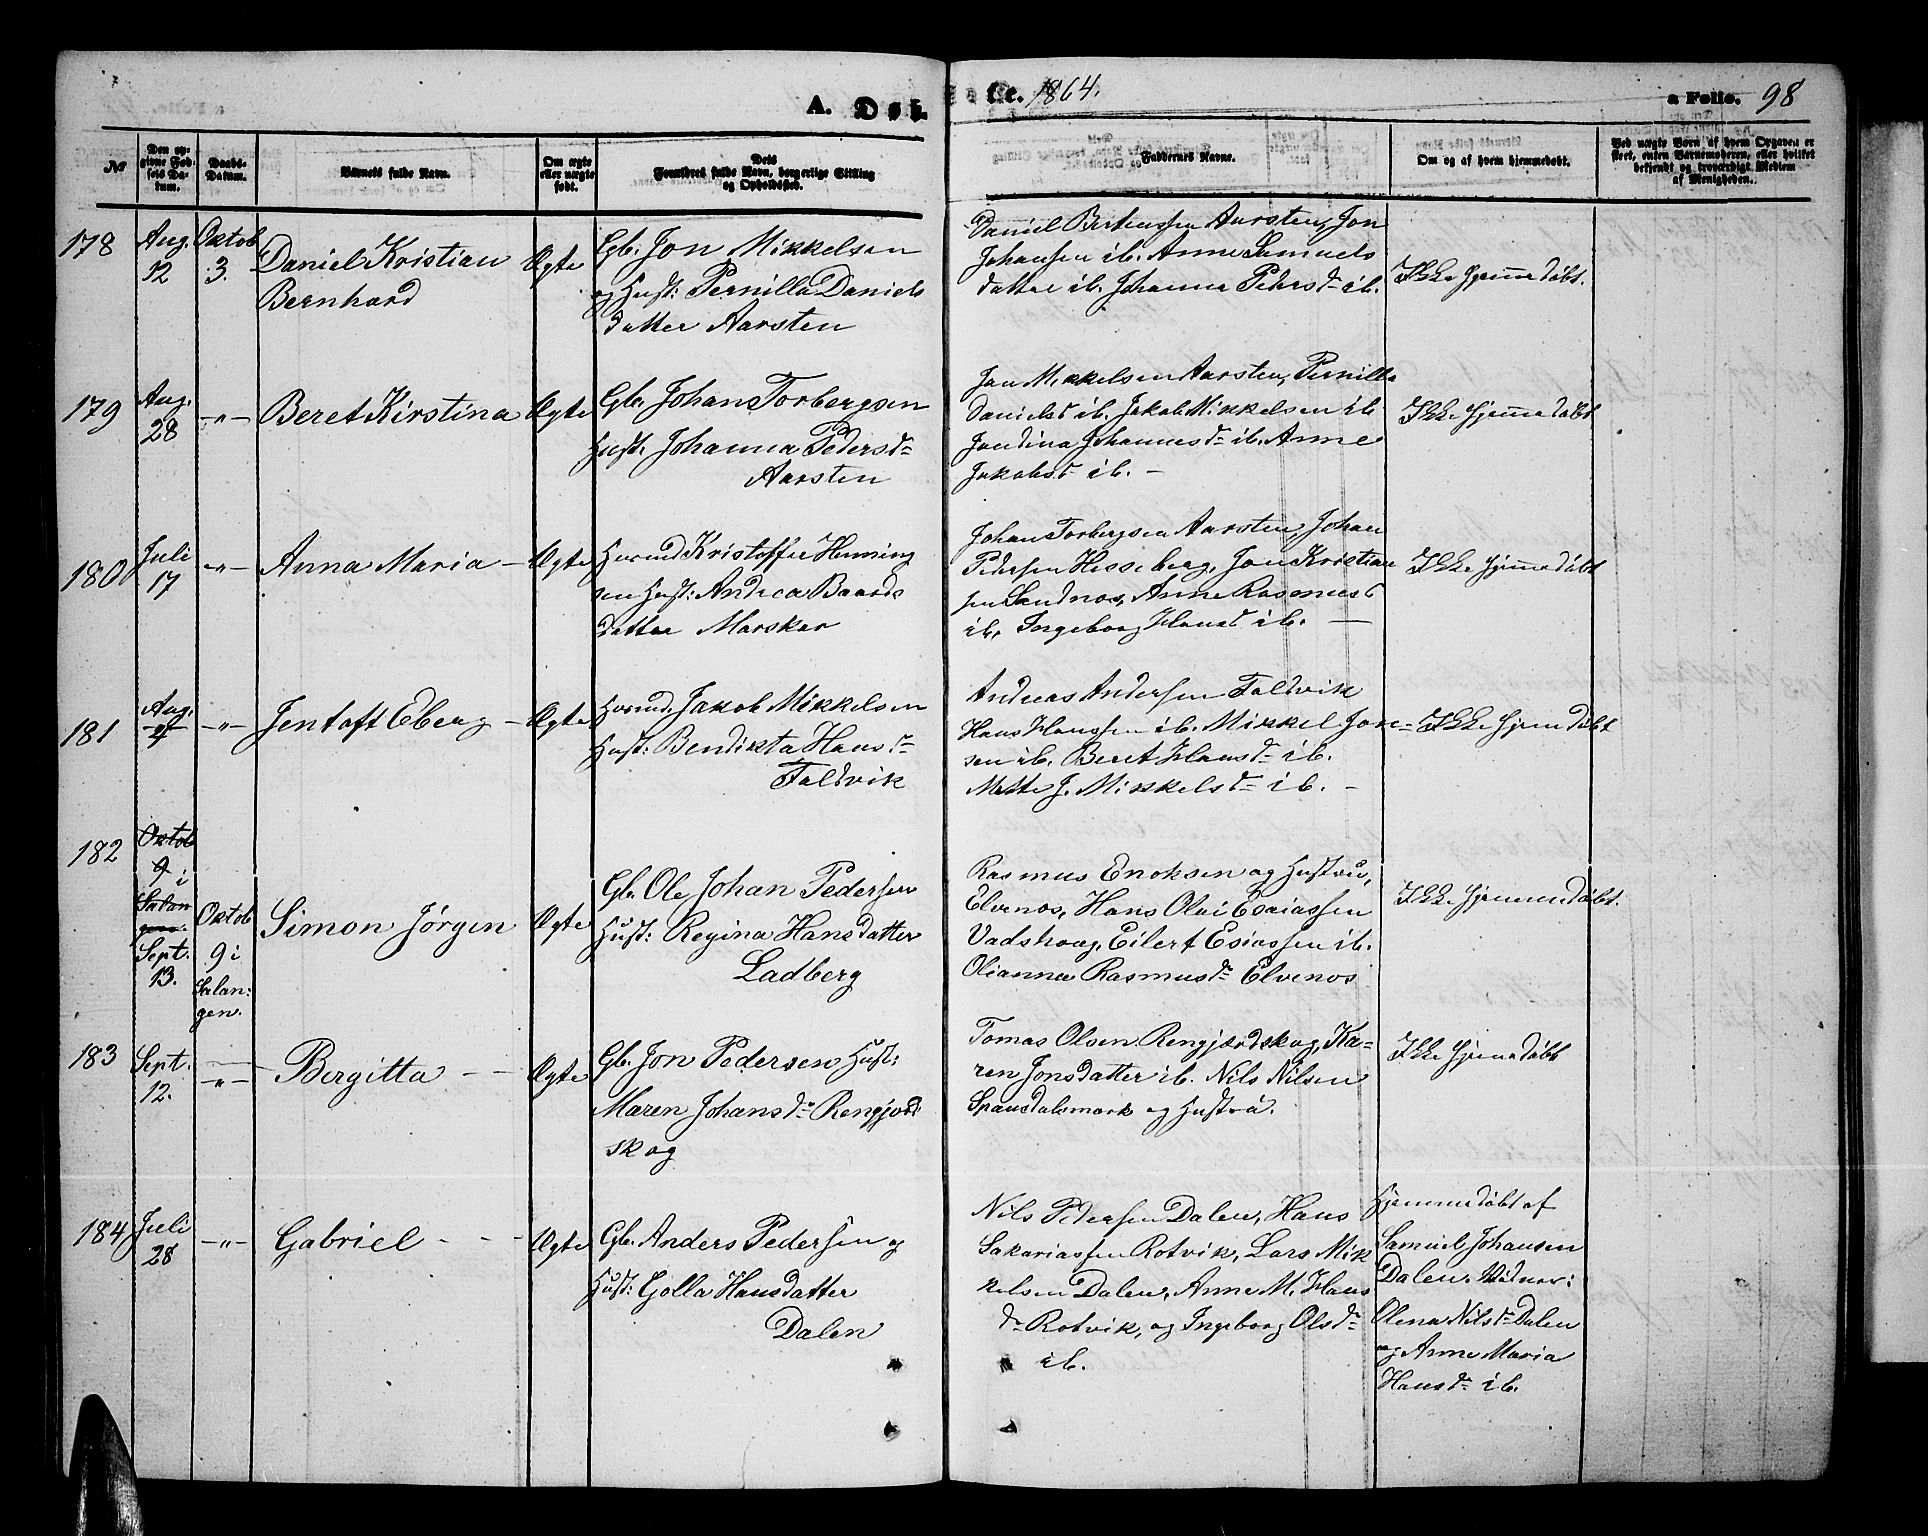 A. Døb te. 1864.
a Folio. 98
№
Den op-
givne Fød-
sels Da-
tum.
Daabs-
Datum.
Barnets fulde Navn.
Om ægte
eller uægte
født.
Dets
Forældres fulde Navn, borgerlige Stilling
og Opholdssted.
Faddernes Navne.
Om og af hvem hjemmedøbt.
Ved uægte Børn af hvem Opgaven er
skeet, enten Barnemoderen, eller hvilket
bekjendt og troværdigt Medlem
af Menigheden.
178
Aug.
12
Oktob
3.
Daniel Kristian
Bernhard
Ægte
Gb. Jon Mikkelsen
og Hust: Pernilla Daniels
datter Aarsten
Daniel Bertenssen Aarsten, Jon
Johansen ib. Anne Samuels
datter ib. Johanna Pedersd ib.
Ikke hjemmedøbt.
179
Aug.
28
-"-
Beret Kirstina
Ægte
Gb. Johan Torbergsen
Hust. Johanna Pedersd
Aarsten
Jon Mikkelsen Aarsten, Pernilla
Danielsd ib. Jakob Mikkelsen ib.
Jondina Johannesd ib. Anne
Jakobsd ib. -
Ikke hjemmedøbt
180
Juli
17
-"-
Anna Maria -
Ægte
Husmd Kristoffer Henning
sen Hust: Andrea Baards
datter Marskar
Johan Torbergsen Aarsten, Johan
Pedersen Hesseberg, Jon Kristian
sen Sandnos, Anne Rasmusd
ib. Ingeborg Hansd ib. -
Ikke hjemmedøbt
181
Aug.
-"-
Jentoft Eberg -
Ægte
Husmd. Jakob Mikkelsen
Hust: Bendikta Hansd
Foldvik
Andreas Andersen Foldvik
Hans Hanssen ib. Mikkel Jon-
sen ib. Beret Hansd ib.
Mette J. Mikkelsd ib. -
Ikke hjemmedøbt
182
Oktob
9 i
Salan
gen.
Sept.
13.
Oktob
9 i
Salan:
gen.
Simon Jørgen
Ægte
Gb. Ole Johan Pedersen
Hust: Regina Hansdatter
Ladberg
Rasmus Enoksen og Hustru,
Elvenos, Hans Olai Esaiassen
Vadshaag, Eilert Esiassen ib.
Olianna Rasmusd Elvenos
Ikke hjemmedøbt.
183
Sept.
12.
-"-
Bergitta - -
Ægte
Gb. Jon Pedersen Hust:
Maren Johansd Rengjord
skog
Tomas Olsen Rengjærdskog, Ka-
ren Jonsdatter ib. Nils Nilsen
Spansdalsmark og Hustru.
Ikke hjemmedøbt
184
Juli
28
-"-
Gabriel - - -
Ægte
Gb. Anders Pedersen og
Hust: Golla Hansdatter
Dalen
Nils Pedersen Dalen, Hans
Sakariassen Rotvik, Lars Mik
kelsen Dalen, Anne M. Hans
d Rotvik, og Ingeborg Olsd
ib.
Hjemmedøbt af
Samuel Johansen
Dalen. Vidner:
Olena Nilsd Dalen
og Anne Maria
Hansd ib.